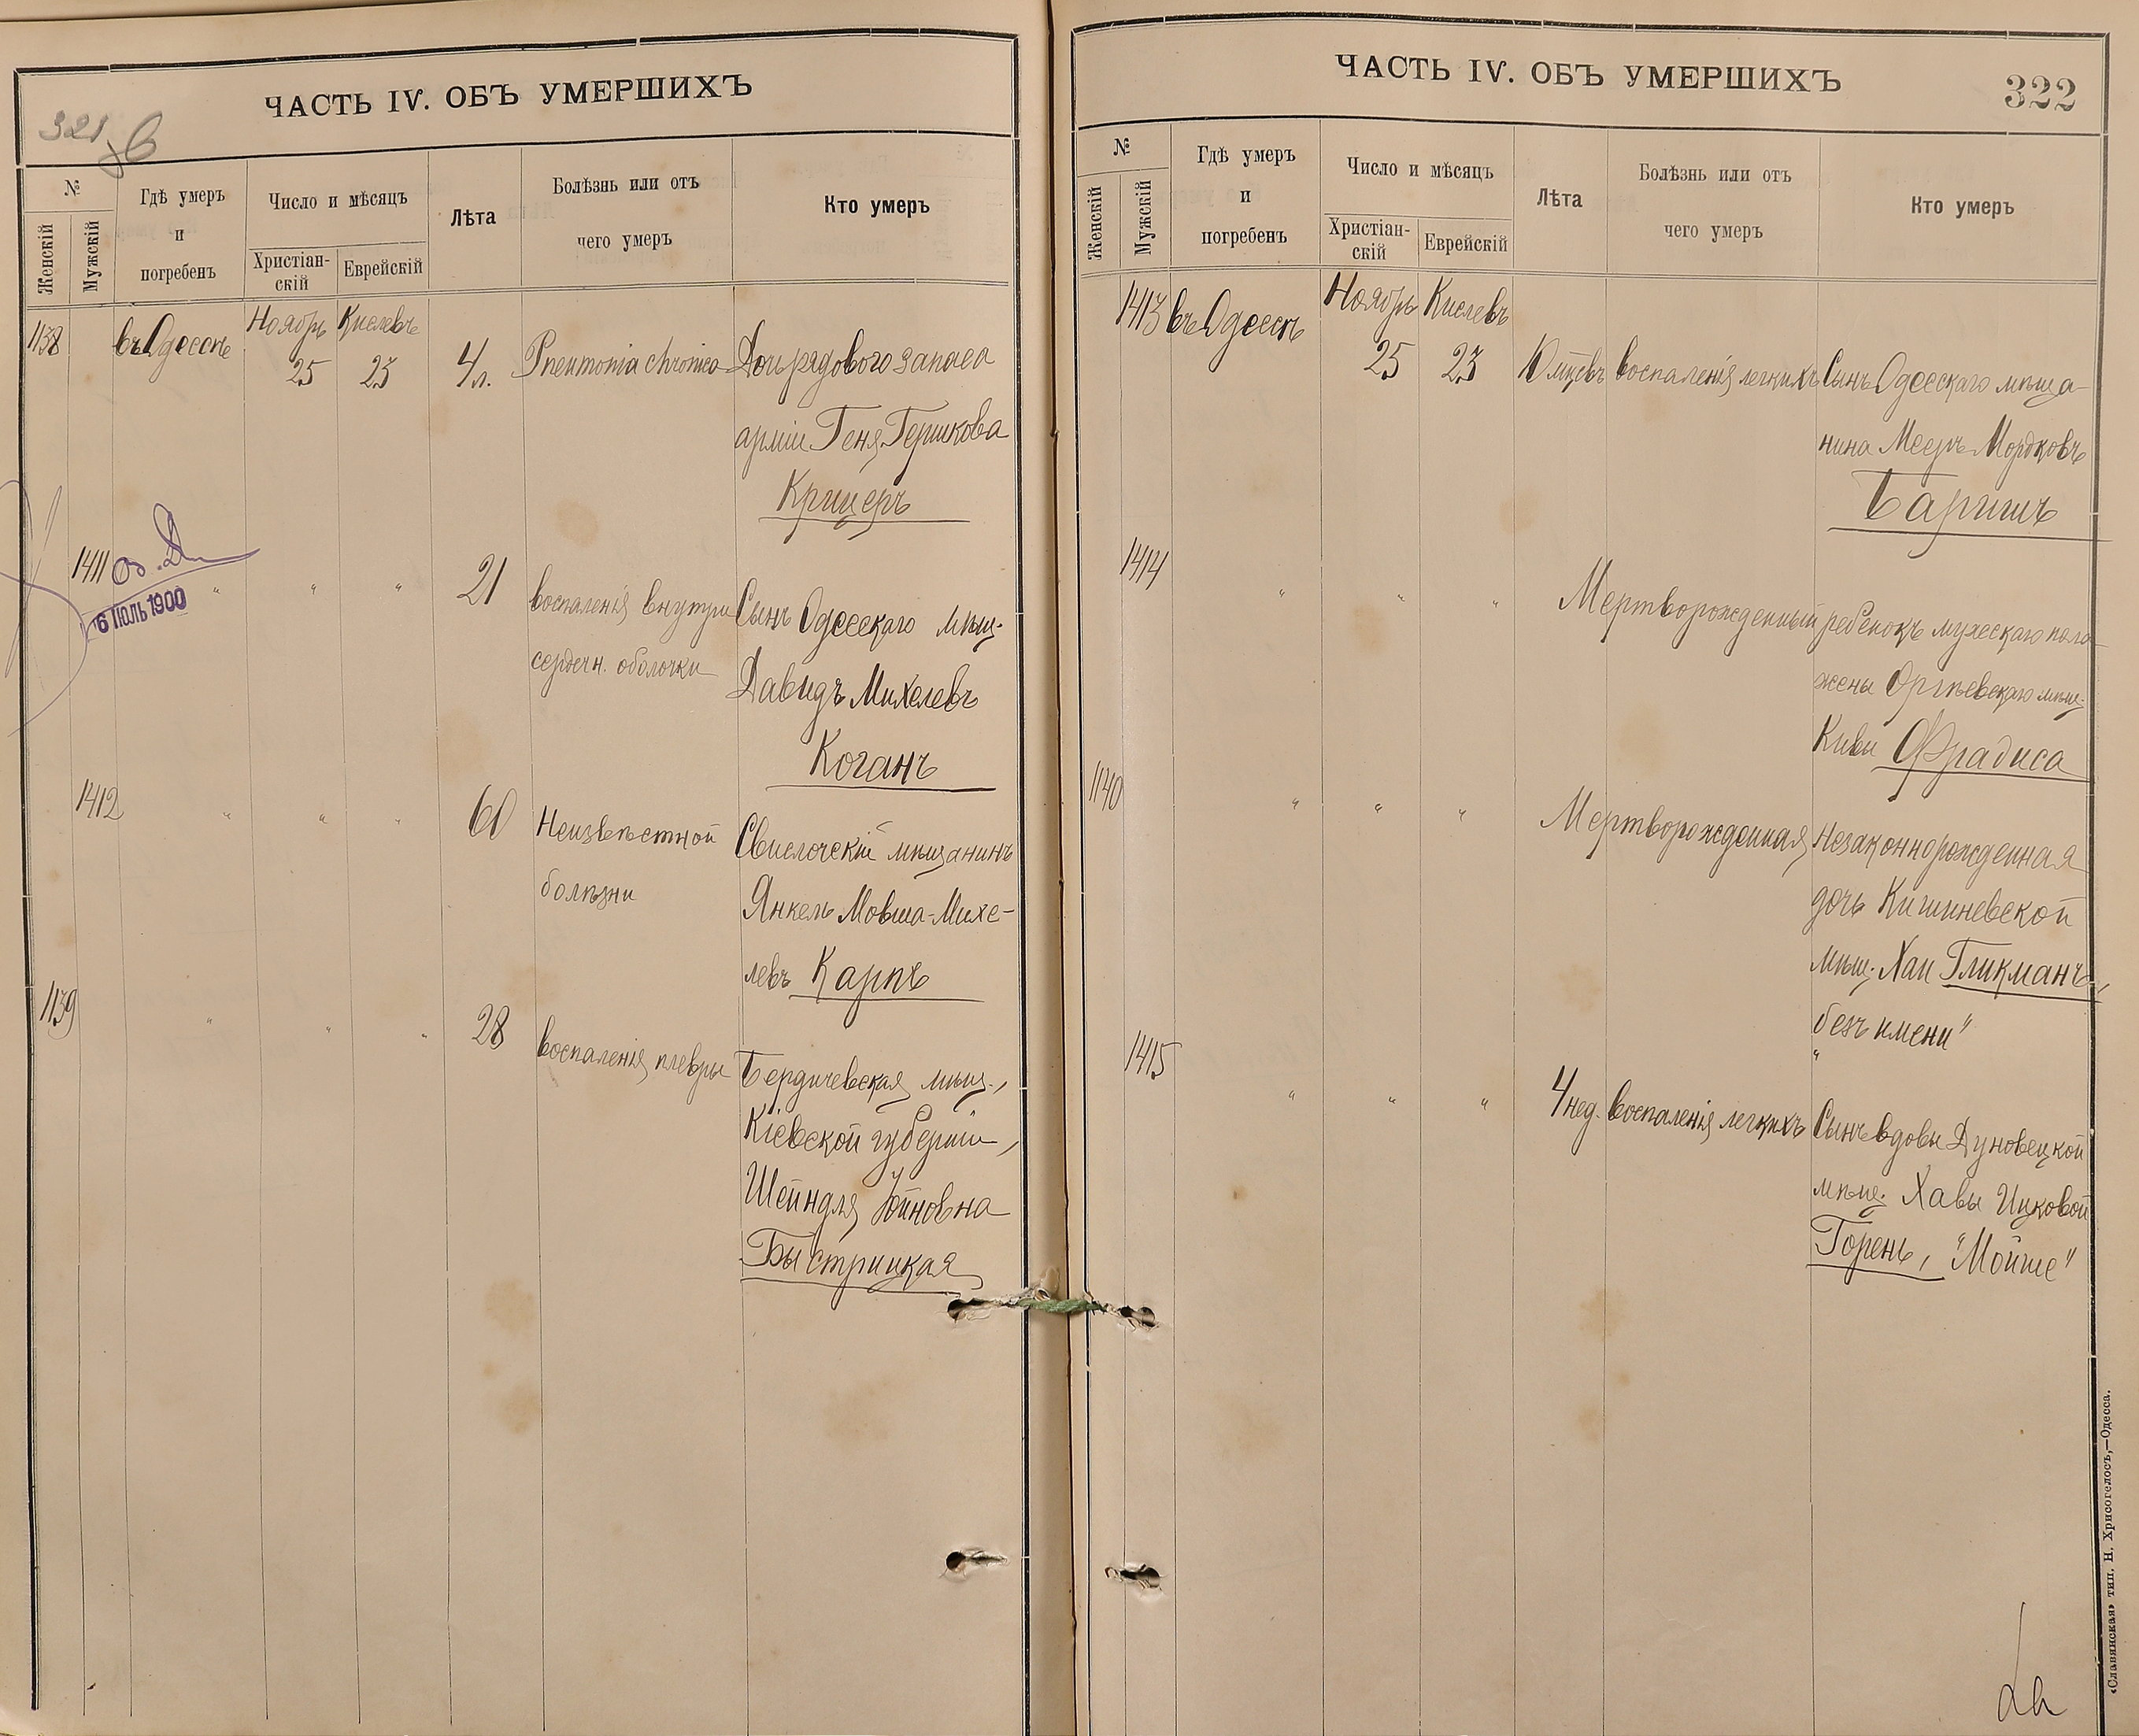 ЧАСТЬ IV. ОБЪ УМЕРШИХЪ
321
№
Женскій
Мужскій
Гдѣ умеръ
и
погребенъ
Число и мѣсяцъ
Христіан-
скій
Еврейскій
Лѣта
Болѣзнь или отъ
чего умеръ
Кто умеръ
Ноябрь Кислевъ
1138 въ Одессѣ 25 23 4 л. Pneumonia chronica Дочь рядового запаса
арміи Геня Гершкова
Крицеръ
1411 " " " 21 воспаленія внутри Сынъ Одесскаго мѣщ.
6 ІЮЛЬ 1900
сердечн. оболочки
Давидъ Михелевъ
Коганъ
1412 " " " 60 Неизвѣстной Свислочскій мѣщанинъ
болѣзни Янкель Мовша-Михе-
левъ Карпъ
1139 " " " 28 воспаленія плевры Бердичевская мѣщ.,
Кіевской губерніи,
Шейндля Юйновна
Быстрицкая
ЧАСТЬ IV. ОБЪ УМЕРШИХЪ
322
№
Женскій
Мужскій
Гдѣ умеръ
и
погребенъ
Число и мѣсяцъ
Христіан-
скій
Еврейскій
Лѣта
Болѣзнь или отъ
чего умеръ
Кто умеръ
Ноябрь Кислевъ
1413 въ Одессѣ 25 23 10 мѣс  воспаленія легкихъ Сынъ Одесскаго мѣща-
нина Мееръ Мордковъ
Баришъ
1414 " " " Мертворожденный ребенокъ мужескаго пола
жены Оргѣевскаго мѣщ.
Кивы Фрадиса
1140 " " " Мертворожденная Незаконнорожденная
дочь Кишиневской
мѣщ. Хаи Гликманъ,
"безъ имени"
1415 " " " 4 нед. воспаленія легкихъ Сынъ вдовы Дуновецкой
мѣщ. Хавы Ицковой
Горень, "Мойше"
«Славянская» тип. Н. Хрисогелосъ,—Одесса.